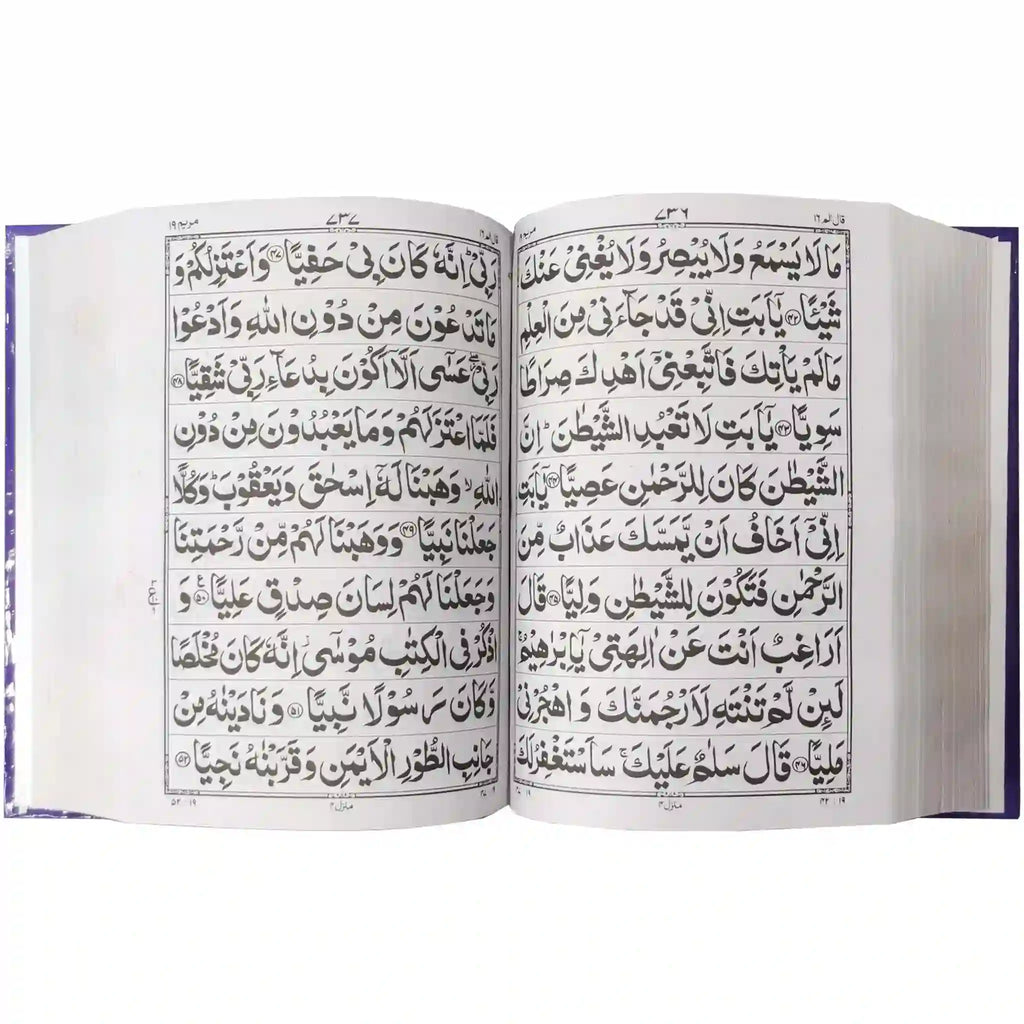 قال الم ١٦
٧٣٦
مريم ١٩
مَا لَا يَسْمَعُ وَلَا يُبْصِرُ وَلَا يُغْنِىْ عَنْكَ
شَيْئًا ﴿۴۲﴾ يٰۤاَبَتِ اِنِّىْ قَدْ جَآءَنِىْ مِنَ الْعِلْمِ
مَا لَمْ يَاْتِكَ فَاتَّبِعْنِىْۤ اَهْدِكَ صِرَاطًا
سَوِيًّا ﴿۴۳﴾ يٰۤاَبَتِ لَا تَعْبُدِ الشَّيْطٰنَ ؕ اِنَّ
الشَّيْطٰنَ كَانَ لِلرَّحْمٰنِ عَصِيًّا ﴿۴۴﴾ يٰۤاَبَتِ
اِنِّىْۤ اَخَافُ اَنْ يَّمَسَّكَ عَذَابٌ مِّنَ
الرَّحْمٰنِ فَتَكُوْنَ لِلشَّيْطٰنِ وَلِيًّا ﴿۴۵﴾ قَالَ
اَرَاغِبٌ اَنْتَ عَنْ اٰلِهَتِىْ يٰۤاِبْرٰهِيْمُ ۚ
لَئِنْ لَّمْ تَنْتَهِ لَاَرْجُمَنَّكَ وَاهْجُرْنِىْ
مَلِيًّا ﴿۴۶﴾ قَالَ سَلٰمٌ عَلَيْكَ ۚ سَاَسْتَغْفِرُ لَكَ
منزل ۴
قال الم ١٦
٧٣٧
مريم ١٩
رَبِّىْ ؕ اِنَّهٗ كَانَ بِىْ حَفِيًّا ﴿۴۷﴾ وَاَعْتَزِلُكُمْ وَ
مَا تَدْعُوْنَ مِنْ دُوْنِ اللّٰهِ وَاَدْعُوْا
رَبِّىْ ۖ عَسٰٓى اَلَّاۤ اَكُوْنَ بِدُعَآءِ رَبِّىْ شَقِيًّا ﴿۴۸﴾
فَلَمَّا اعْتَزَلَهُمْ وَمَا يَعْبُدُوْنَ مِنْ دُوْنِ
اللّٰهِ ۙ وَهَبْنَا لَهٗۤ اِسْحٰقَ وَيَعْقُوْبَ ؕ وَكُلًّا
جَعَلْنَا نَبِيًّا ﴿۴۹﴾ وَوَهَبْنَا لَهُمْ مِّنْ رَّحْمَتِنَا
وَجَعَلْنَا لَهُمْ لِسَانَ صِدْقٍ عَلِيًّا ﴿۵۰﴾ وَ
اذْكُرْ فِى الْكِتٰبِ مُوْسٰٓى ؗ اِنَّهٗ كَانَ مُخْلَصًا
وَّكَانَ رَسُوْلًا نَّبِيًّا ﴿۵۱﴾ وَنَادَيْنٰهُ مِنْ
جَانِبِ الطُّوْرِ الْاَيْمَنِ وَقَرَّبْنٰهُ نَجِيًّا ﴿۵۲﴾
منزل ۴